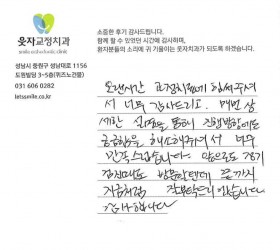 웃자교정치과
smile orthodontic clinic
성남시 중원구 성남대로 1156
도원빌딩 3~5층(위즈노건물)
031 606 0282
letssmile.co.kr
소중한 후기 감사드립니다.
함께 할 수 있었던 시간에 감사하며,
환자분들의 소리에 귀 기울이는 웃자교정치과가 되도록 하겠습니다.
오랜시간 교정치료에 힘써주셔
서 너무 감사드리고. 매번 상
세한 설명을 통해 진행방향에도
궁금함을 해소해주셔서 너무
만족스럽습니다. 앞으로도 정기
검진때도 방문할텐데 끝까지
지금처럼 잘부탁드리겠습니다
감사합니다